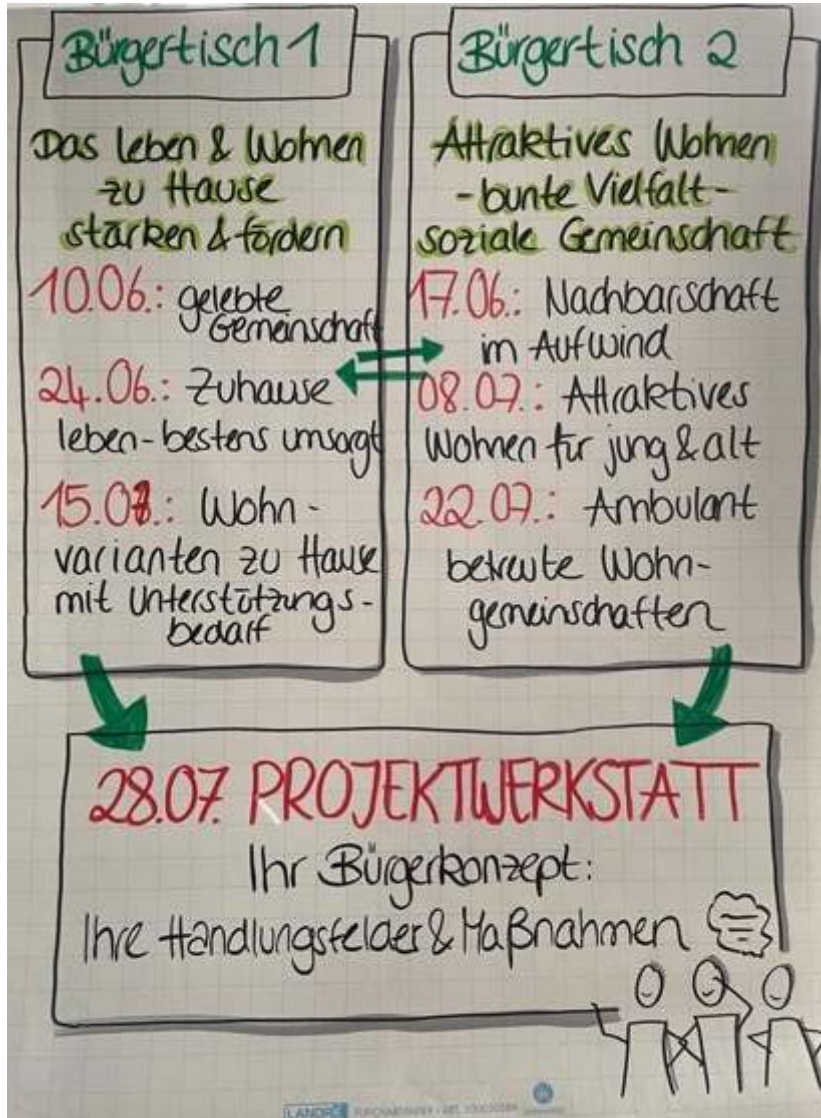 Bürgertisch 1
Das Leben & Wohnen
zu Hause
stärken & fördern
10.06.: gelebte
Gemeinschaft
24.06.: Zuhause
leben - bestens umsorgt
15.07.: Wohn-
varianten zu Hause
mit Unterstützungs-
bedarf
Bürgertisch 2
Attraktives Wohnen
- bunte Vielfalt -
soziale Gemeinschaft
17.06.: Nachbarschaft
im Aufwind
08.07.: Attraktives
Wohnen für jung & alt
22.07.: Ambulant
betreute Wohn-
gemeinschaften
28.07. PROJEKTWERKSTATT
Ihr Bürgerkonzept:
Ihre Handlungsfelder & Maßnahmen
LANDRÉ